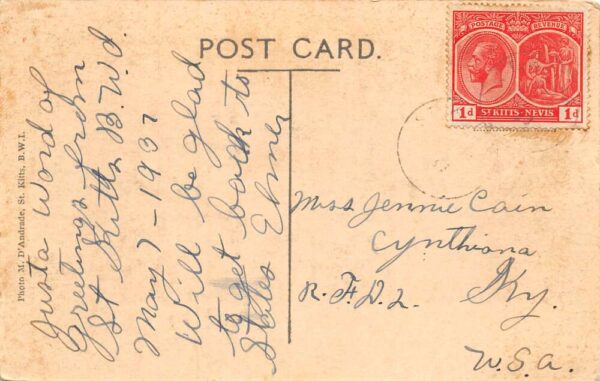 POST CARD.
POSTAGE REVENUE
1d St KITTS-NEVIS 1d
Photo M. D'Andrade, St. Kitts, B.W.I.
Just a Word of
Greetings from
St Kitts B.W.I.
May 7-1937
Will be glad
to get back to
States Elmer
Miss Jennie Cain
Cynthiana
R.F.D.2. Ky.
U.S.A.